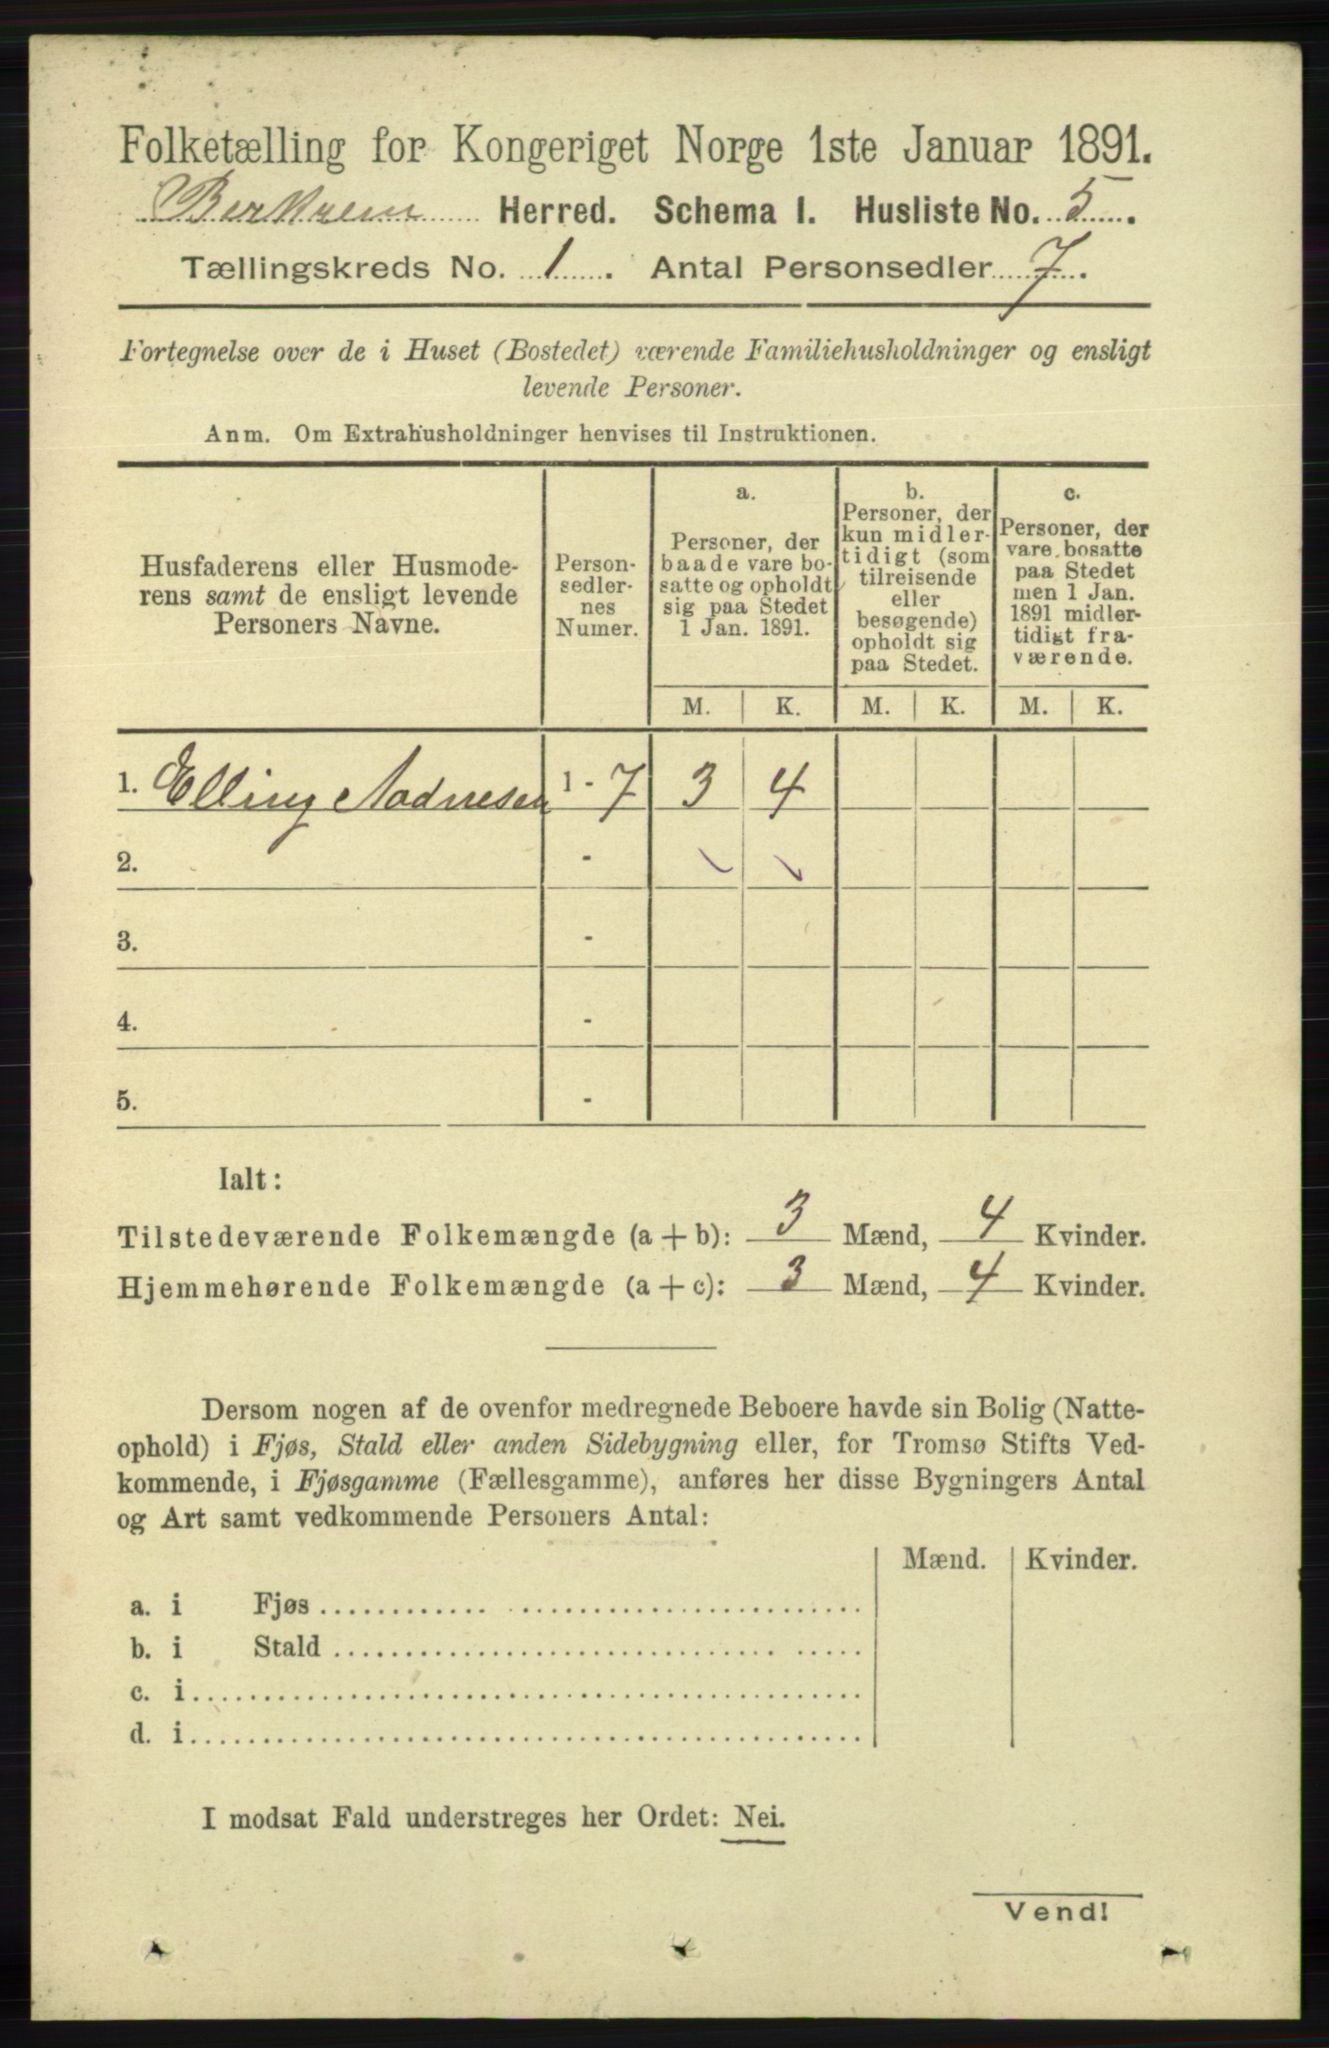 Folketælling for Kongeriget Norge 1ste Januar 1891.
Berkrem Herred. Schema I. Husliste No. 5.
Tællingskreds No. 1. Antal Personsedler 7.
Fortegnelse over de i Huset (Bostedet) værende Familiehusholdninger og ensligt
levende Personer.
Anm. Om Extrahusholdninger henvises til Instruktionen.
Husfaderens eller Husmode-
rens samt de ensligt levende
Personers Navne.
Person-
sedler-
nes
Numer.
a.
Personer, der
baade vare bo-
satte og opholdt
sig paa Stedet
1 Jan. 1891.
b.
Personer, der
kun midler-
tidigt (som
tilreisende
eller
besøgende)
opholdt sig
paa Stedet.
c.
Personer, der
vare bosatte
paa Stedet
men 1 Jan.
1891 midler-
tidigt fra-
værende.
M. K. M. K. M. K.
1. Elling Aadnesen 1 - 7 3 4
2. -
3. -
4. -
5. -
Ialt:
Tilstedeværende Folkemængde (a + b): 3 Mænd, 4 Kvinder.
Hjemmehørende Folkemængde (a + c): 3 Mænd, 4 Kvinder.
Dersom nogen af de ovenfor medregnede Beboere havde sin Bolig (Natte-
ophold) i Fjøs, Stald eller anden Sidebygning eller, for Tromsø Stifts Ved-
kommende, i Fjøsgamme (Fællesgamme), anføres her disse Bygningers Antal
og Art samt vedkommende Personers Antal:
Mænd. Kvinder.
a. i Fjøs
b. i Stald
c. i
d. i
I modsat Fald understreges her Ordet: Nei.
Vend!